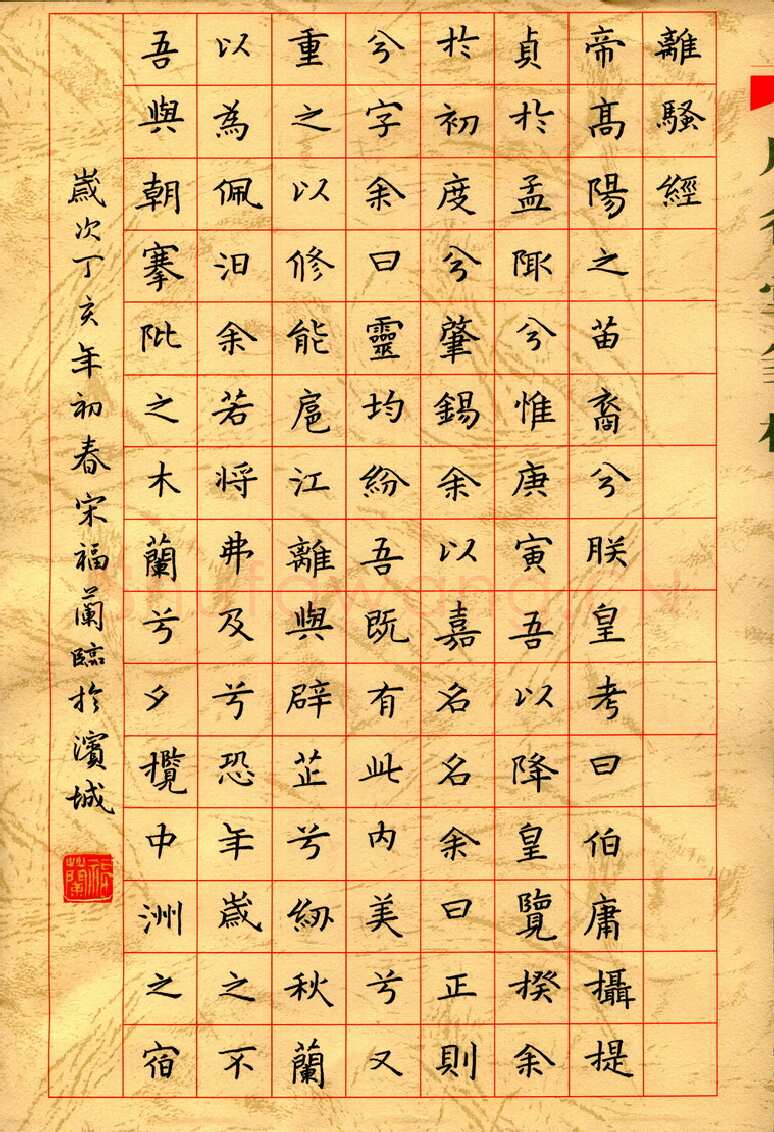 離騷經
帝髙陽之苗裔兮朕皇考曰伯庸攝提
貞於孟陬兮惟庚寅吾以降皇覽揆余
於初度兮肇錫余以嘉名名余曰正則
兮字余曰靈均紛吾既有此內美兮又
重之以修能扈江離與辟芷兮紉秋蘭
以為佩汨余若將弗及兮恐年歲之不
吾與朝搴阰之木蘭兮夕攬中洲之宿
歲次丁亥年初春宋福蘭臨於濱城
福蘭
shufawang.CN